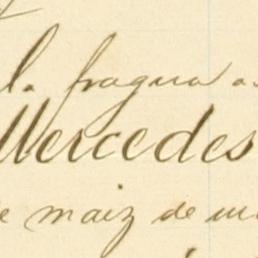 la fragua a
Mercedes
e maiz de un